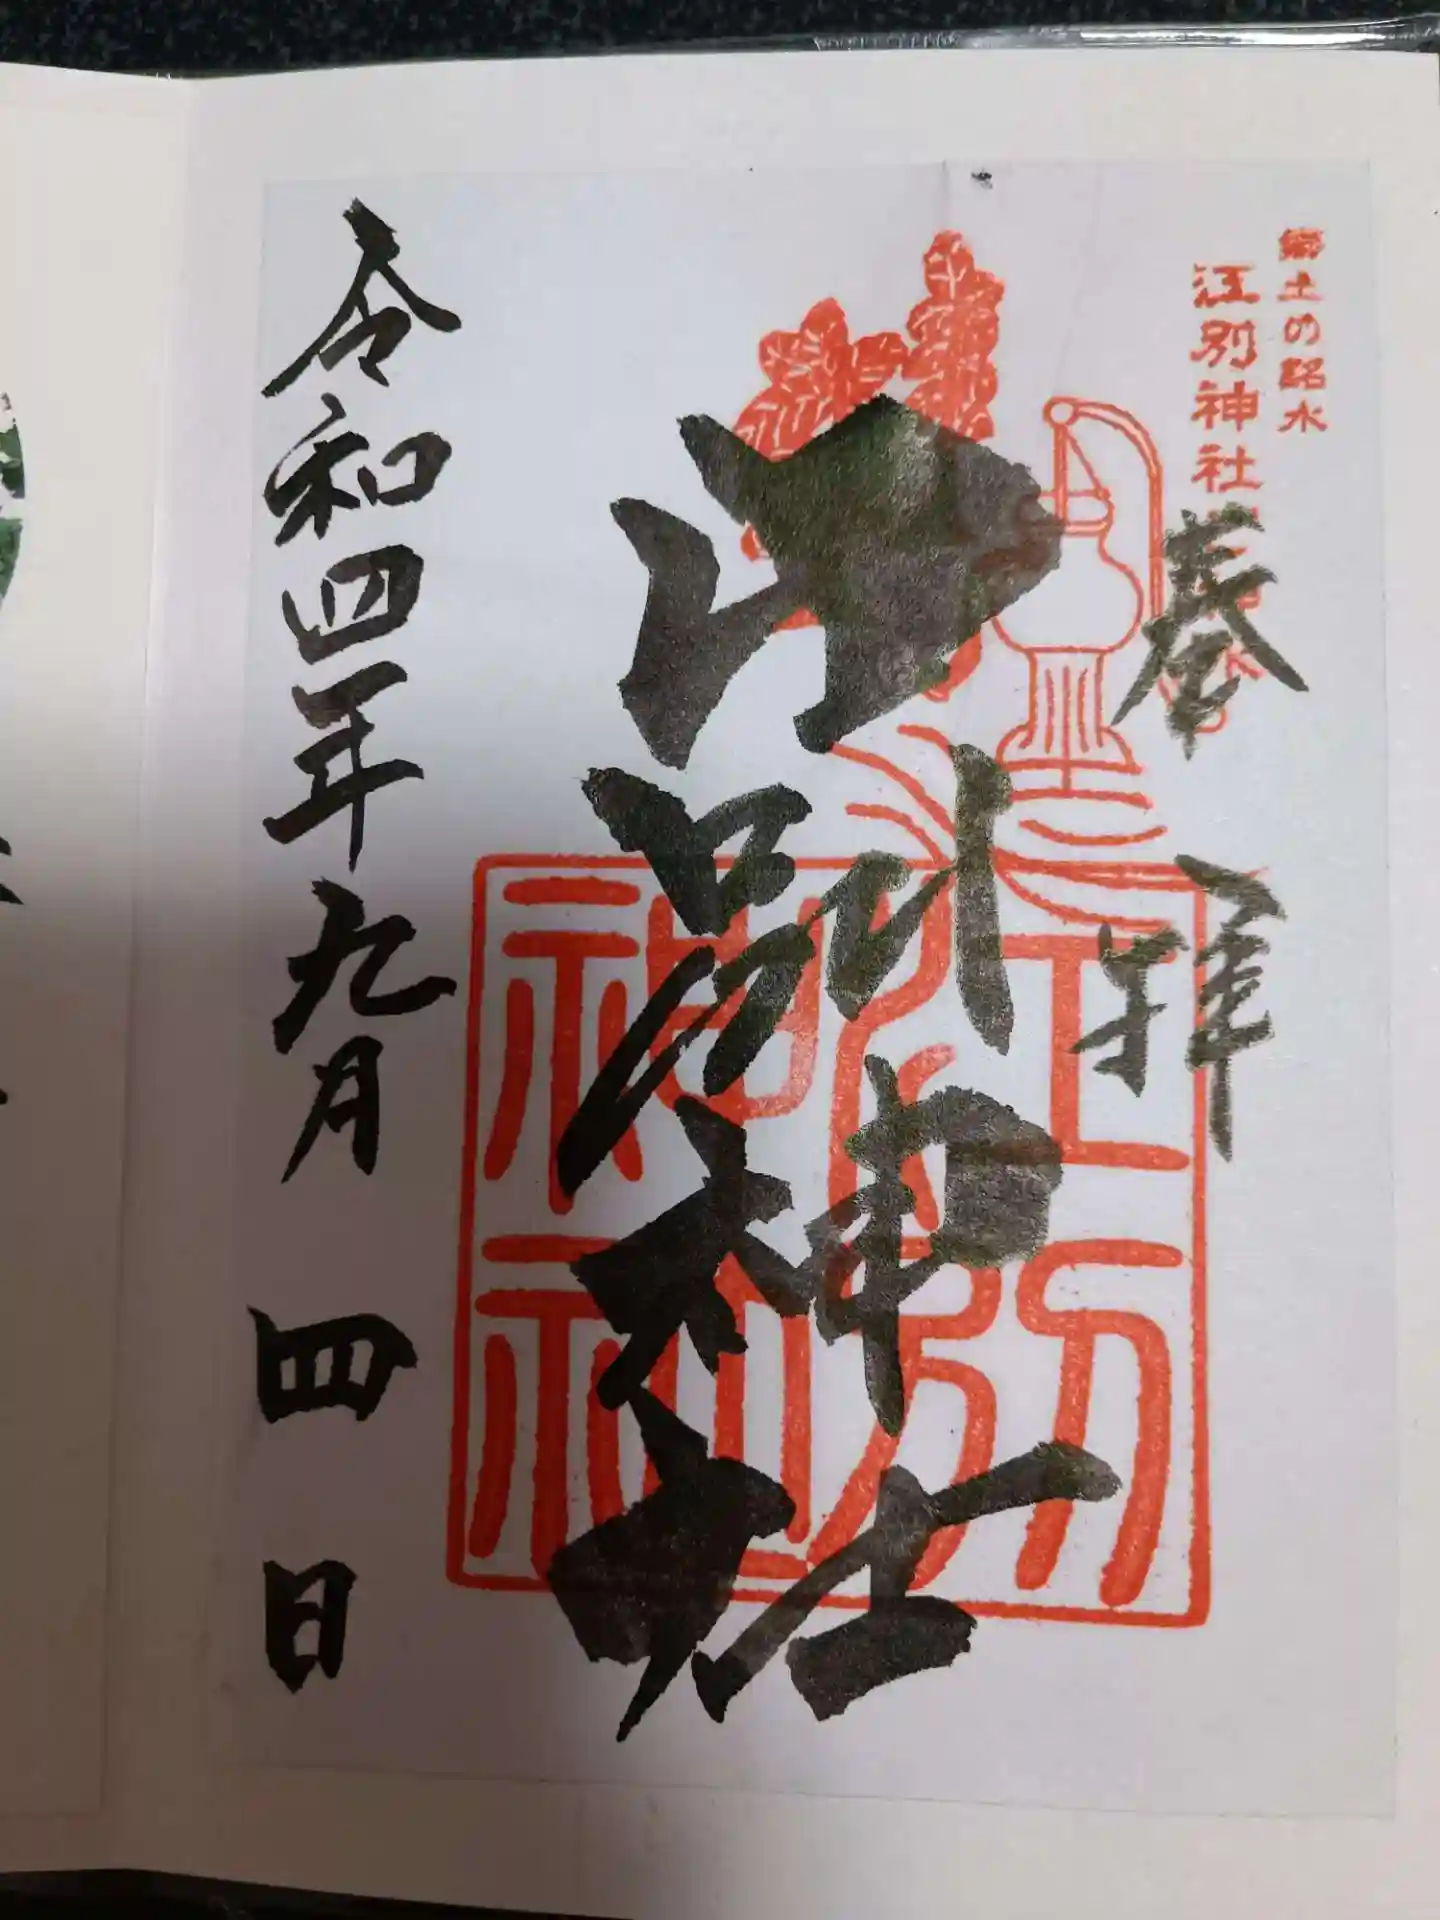 郷土の銘水
江別神社
奉拝
江別神社
江別
神社
令和四年九月四日